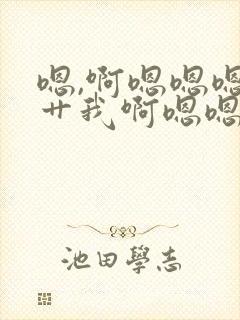 嗯,啊嗯嗯嗯
艹我啊嗯嗯
池田學志